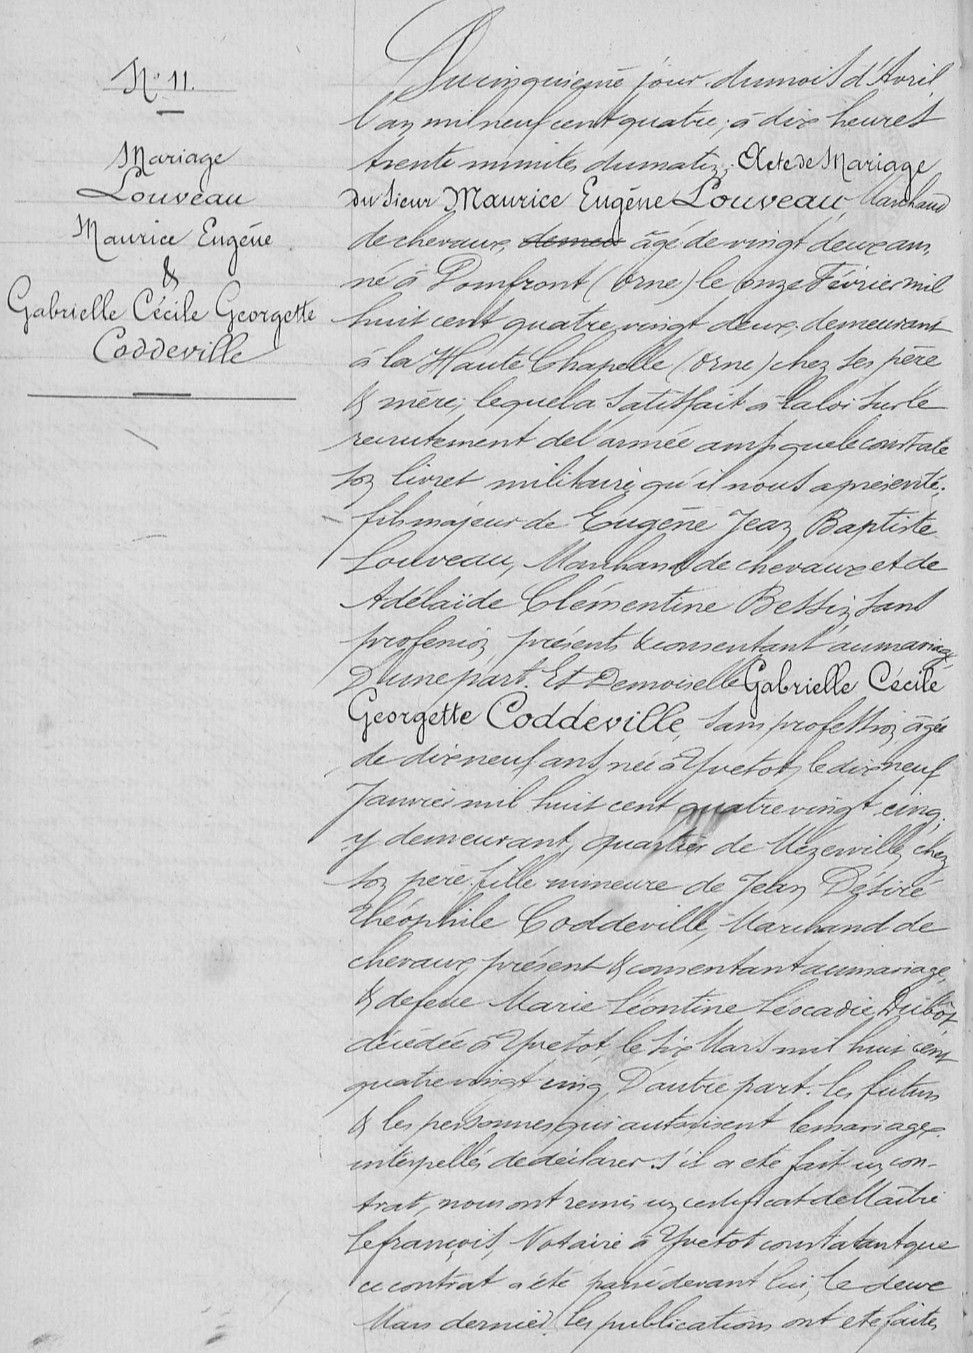 N° 11.
Mariage
Louveau
Maurice Eugène
&
Gabrielle Cécile Georgette
Coddeville
Du cinquième jour du mois d'Avril,
l'an mil neuf cent quatre, à dix heures
trente minutes du matin, Acte de Mariage
du Sieur Maurice Eugène Louveau, Marchand
de chevaux, âgé de vingt deux ans,
né à Domfront (Orne) le onze Février mil
huit cent quatre vingt deux, demeurant
à la Haute Chapelle (Orne) chez ses père
& mère; lequel a satisfait à la loi sur le
recrutement de l'armée ainsi que le constate
son livret militaire qu'il nous a présenté;
fils majeur de Eugène Jean Baptiste
Louveau, Marchand de chevaux et de
Adélaïde Clémentine Bessin, sans
profession, présents & consentant au mariage
D'une part. Et Demoiselle Gabrielle Cécile
Georgette Coddeville, sans profession, âgée
de dix neuf ans, née à Yvetot, le dix neuf
Janvier mil huit cent quatre vingt cinq,
y demeurant, quartier de Mézerville, chez
son père, fille mineure de Jean Désiré
Théophile Coddeville, Marchand de
chevaux, présent & consentant au mariage,
& de feue Marie Léontine Léocadie Dubôt
décédée à Yvetot, le six Mars mil huit cent
quatre vingt cinq, D'autre part. Les futurs
& les personnes qui autorisent le mariage
interpellés de déclarer s'il a été fait un con-
trat, nous ont remis un certificat de Maître
Lefrançois, Notaire à Yvetot constatant que
ce contrat a été passé devant lui, le deux
Mars dernier. Les publications ont été faites